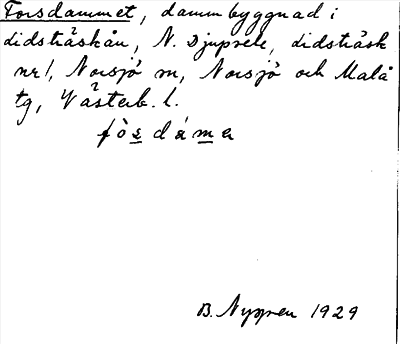 Forsdammet, dammbyggnad i
Lidsträskån, N. Djupsele, Lidsträsk
nr 1, Norsjö sn, Norsjö och Malå
tg, Västerb. l.
B. Nygren 1929